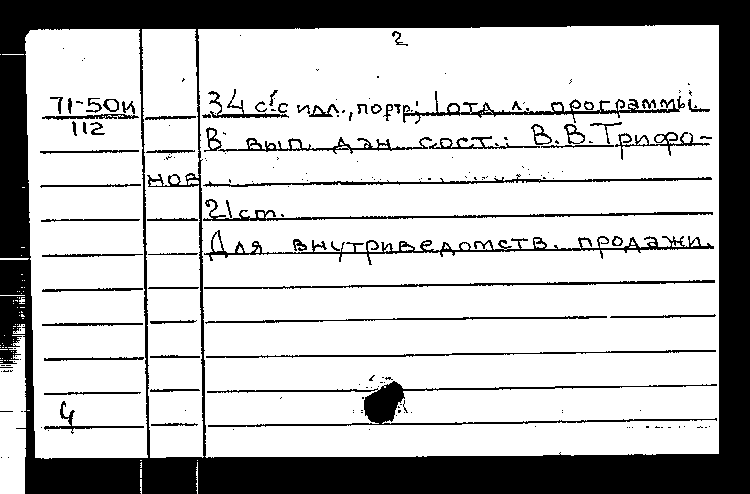 2
71-50и
112
34 с. с илл., портр; 1 отд. л. программы
В вып. дан. сост.: В.В.Трифо-
нов
21 cm.
Для внутриведомств. продажи.
4